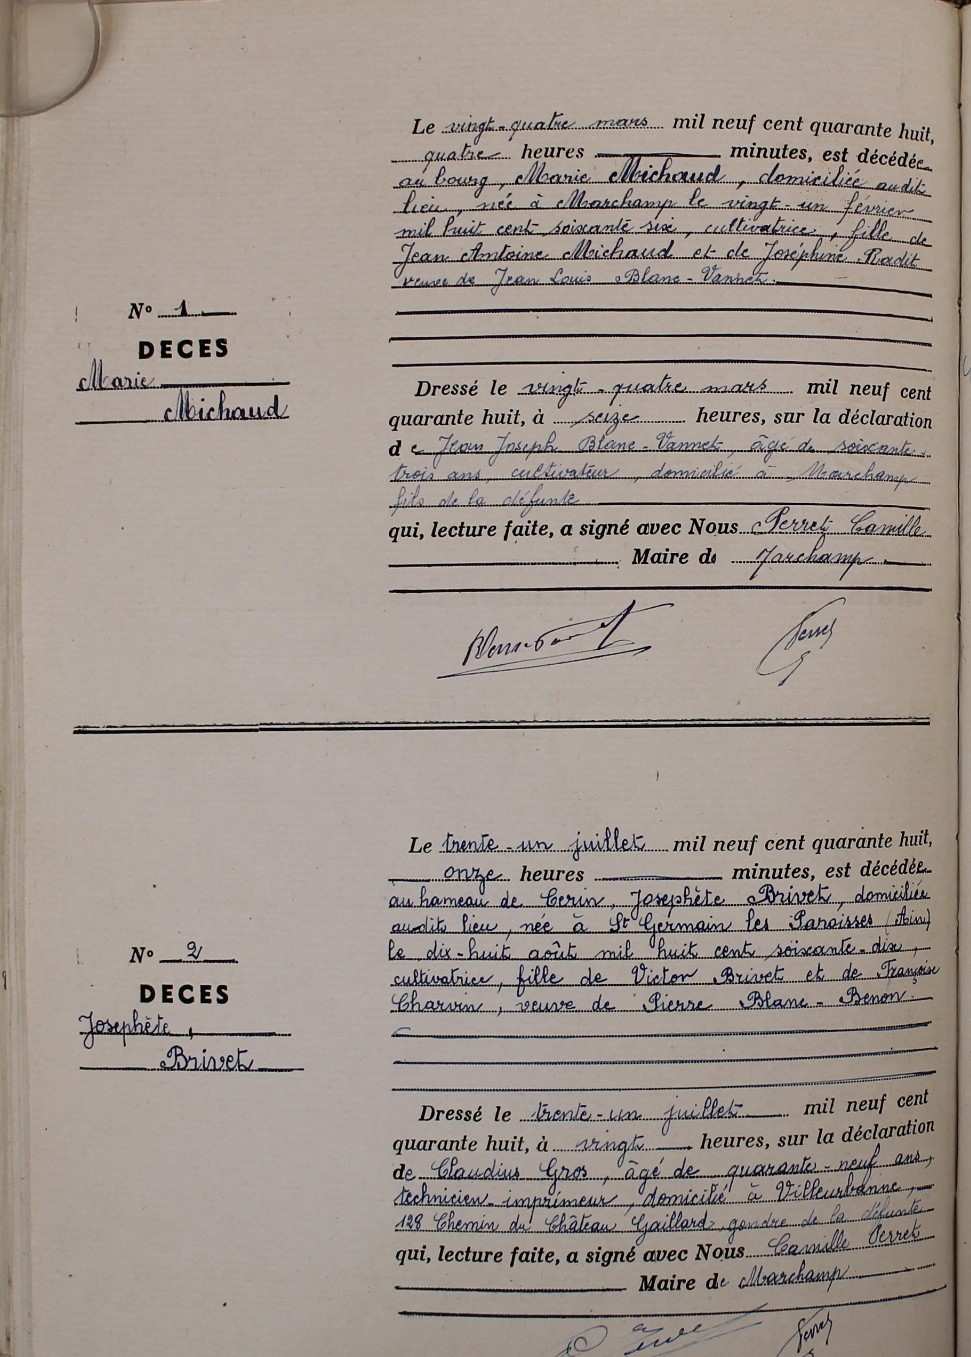 Le vingt-quatre mars mil neuf cent quarante huit,
quatre heures minutes, est décédée
au bourg, Marie Michaud, domiciliée audit
lieu, née à Marchamp le vingt-un février
mil huit cent soixante six, cultivatrice, fille de
Jean Antoine Michaud et de Joséphine Radit
veuve de Jean Louis Blanc-Vannet.
No 1
DECES
Marie
Michaud
Dressé le vingt-quatre mars mil neuf cent
quarante huit, à seize heures, sur la déclaration
de Jean Joseph Blanc-Vannet, âgé de soixante
trois ans, cultivateur, domicilié à Marchamp
fils de la défunte
qui, lecture faite, a signé avec Nous Perret Camille
Maire de Marchamp
Perret
Le trente-un juillet mil neuf cent quarante huit,
onze heures minutes, est décédée
au hameau de Cerin, Josephète Brivet, domiciliée
audit lieu, née à St Germain les Paroisses (Ain)
le dix-huit août mil huit cent soixante-dix,
cultivatrice, fille de Victor Brivet et de Françoise
Charvin, veuve de Pierre Blanc-Benon.
No 2
DECES
Josephète,
Brivet
Dressé le trente-un juillet mil neuf cent
quarante huit, à vingt heures, sur la déclaration
de Claudius Gros, âgé de quarante-neuf ans,
technicien-imprimeur, domicilié à Villeurbanne,
128 Chemin du Château Gaillard, gendre de la défunte
qui, lecture faite, a signé avec Nous Camille Perret
Maire de Marchamp
Perret